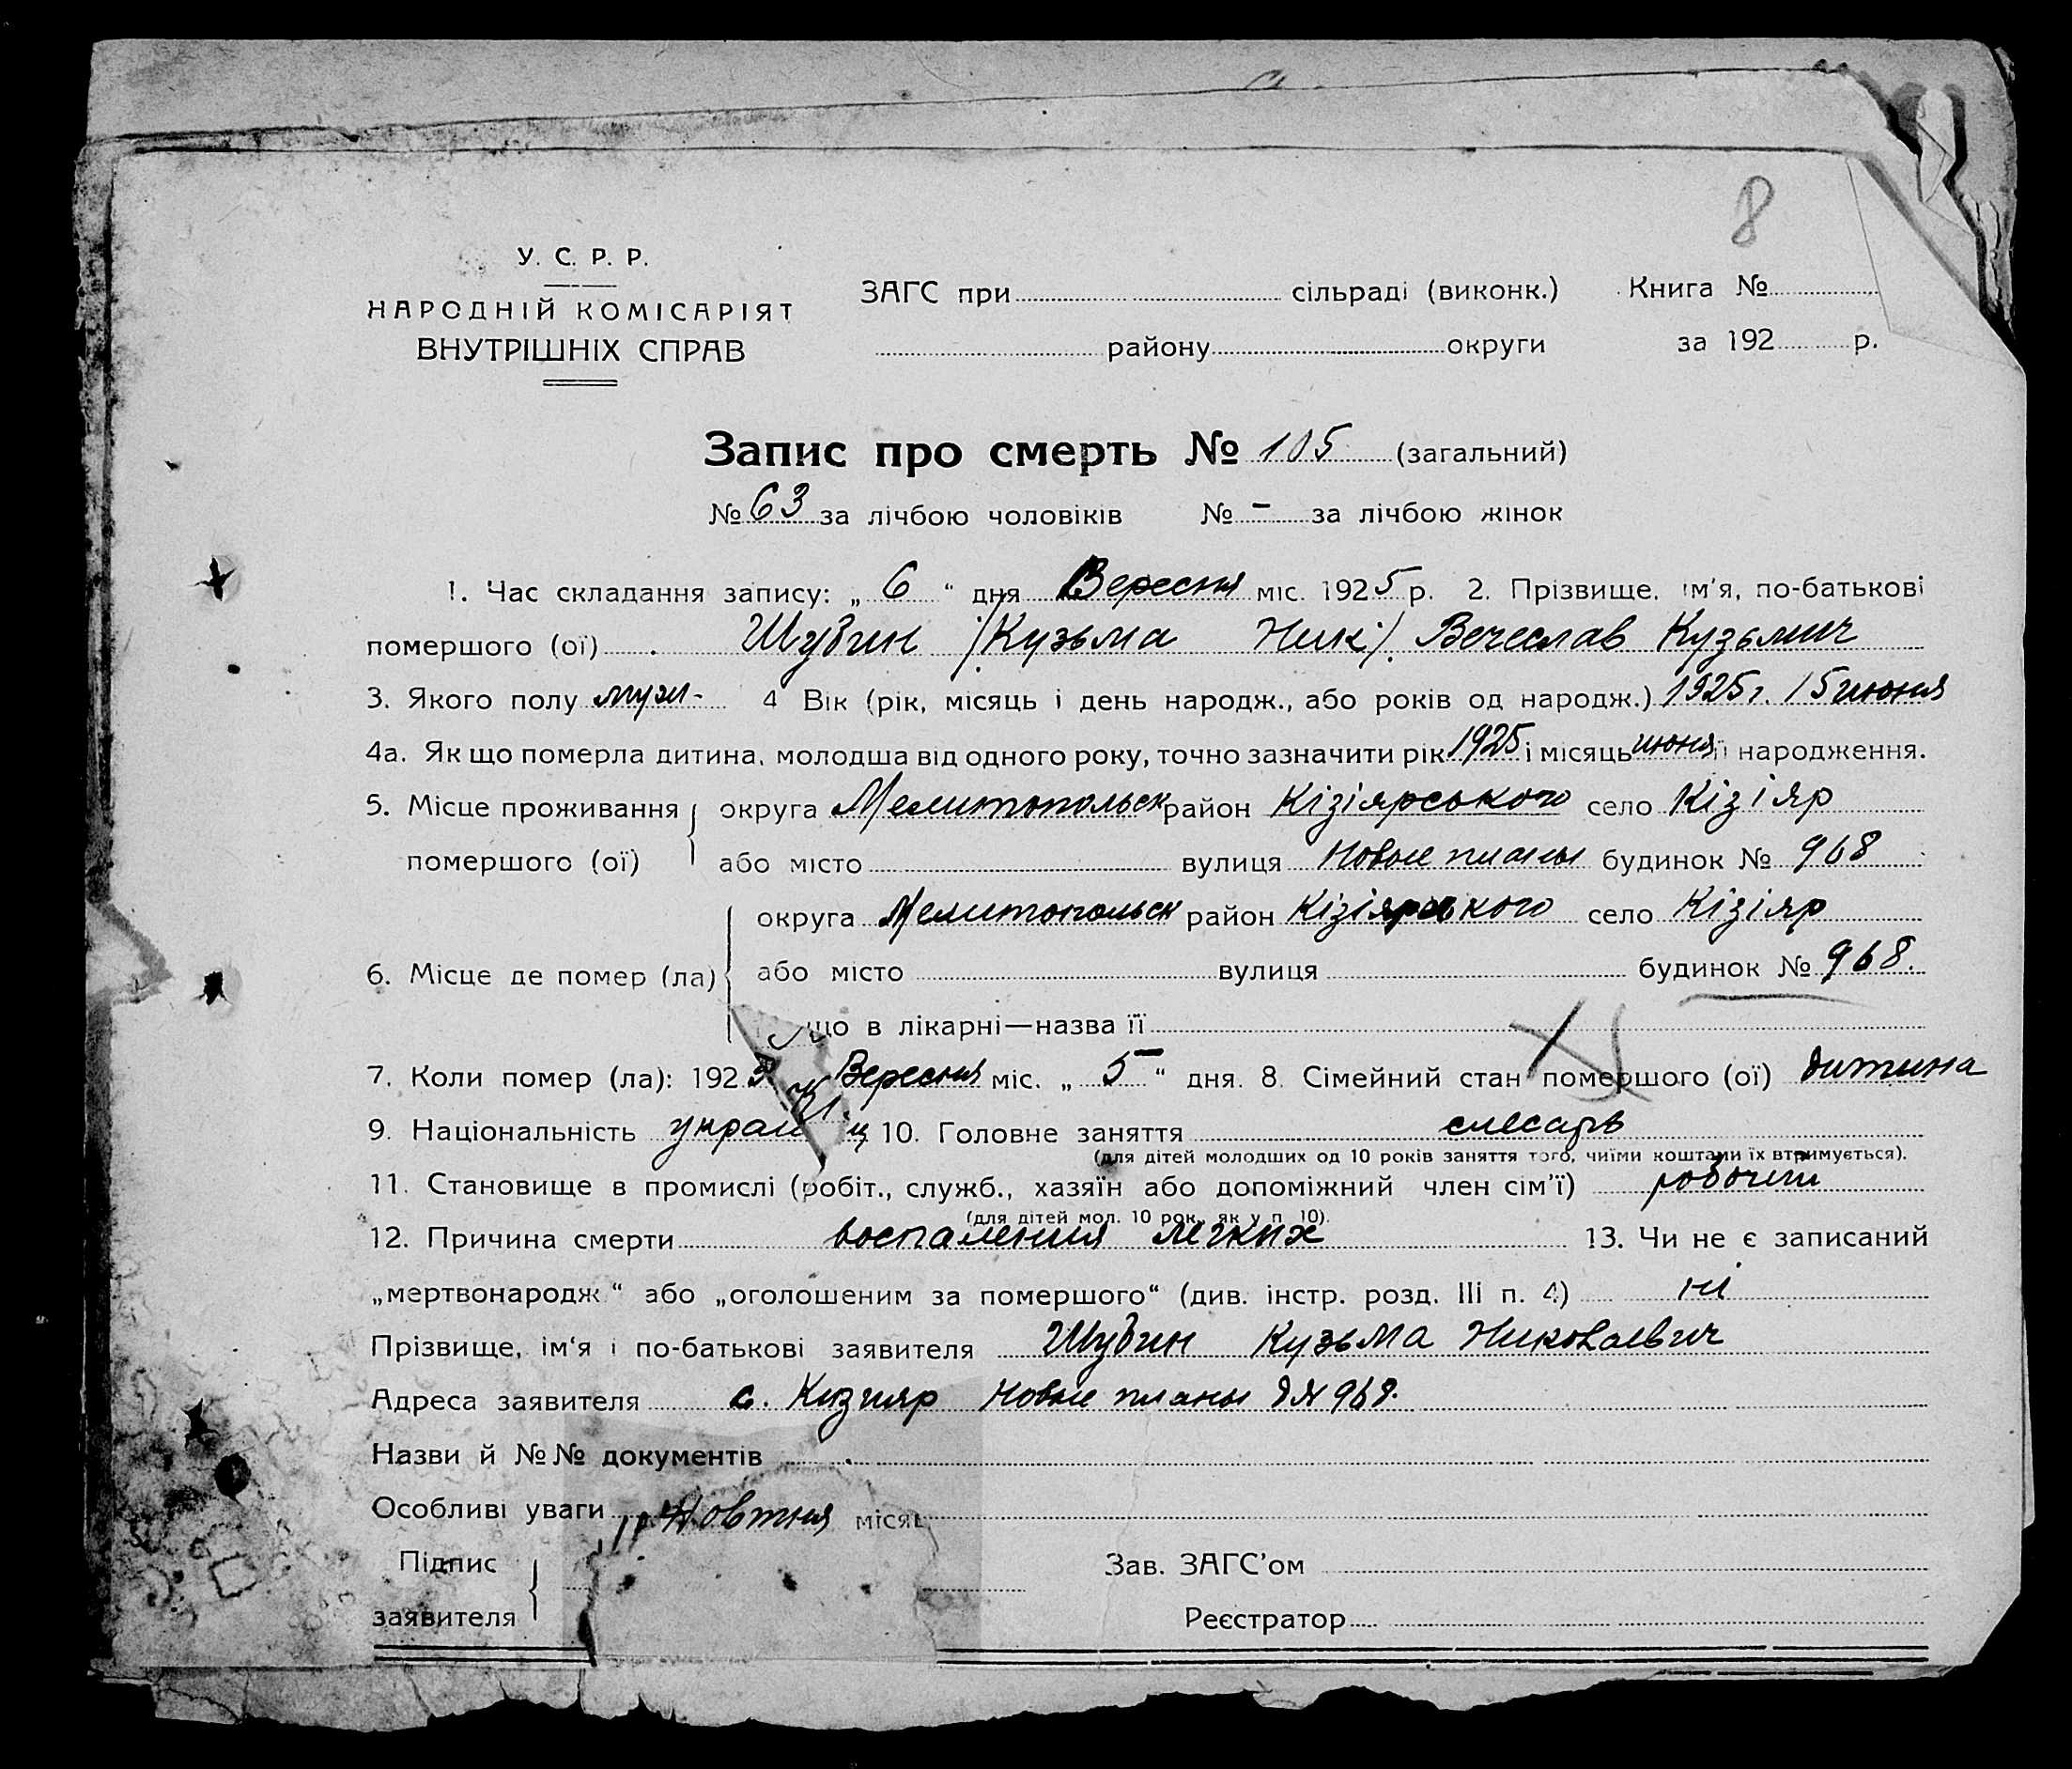 8
У. С. Р. Р.
НАРОДНІЙ КОМІСАРІЯТ
ВНУТРІШНІХ СПРАВ
ЗАГС при сільраді (виконк.) Книга №
району округи за 192 р.
Запис про смерть № 105 (загальний)
№ 63 за лічбою чоловіків № - за лічбою жінок
1. Час складання запису: „ 6 “ дня Вересня міс. 1925 р. 2. Прізвище, ім'я, по-батькові
помершого (ої) Шубин /Кузьма Ник/. Вечеслав Кузьмич
3. Якого полу муж- 4 Вік (рік, місяць і день народж., або років од народж.) 1925 г. 15 июня
4а. Як що померла дитина, молодша від одного року, точно зазначити рік 1925 і місяць июня її народження.
5. Місце проживання округа Мелитопольск район Кізіярського село Кізіяр
помершого (ої) або місто вулиця Новые планы будинок № 968
округа Мелитопольск район Кізіярського село Кізіяр
6. Місце де помер (ла) або місто вулиця будинок № 968.
що в лікарні—назва її
7. Коли помер (ла): 192 Вересня міс. „ 5 “ дня. 8. Сімейний стан помершого (ої) дитина
9. Національність 10. Головне заняття слесарь
(для дітей молодших од 10 років заняття того, чиїми коштами їх втримується).
11. Становище в промислі (робіт., служб., хазяїн або допоміжний член сім'ї) робочий
(для дітей мол. 10 рок., як у п. 10).
12. Причина смерти воспаления легких 13. Чи не є записаний
„мертвонародж.“ або „оголошеним за помершого“ (див. інстр. розд. III п. 4) ні
Прізвище, ім'я і по-батькові заявителя Шубин Кузьма Николаевич
Адреса заявителя с. Кизияр Новые планы д № 968.
Назви й №№ документів
Особливі уваги Жовтня місяц
Підпис Зав. ЗАГС'ом
заявителя Реєстратор